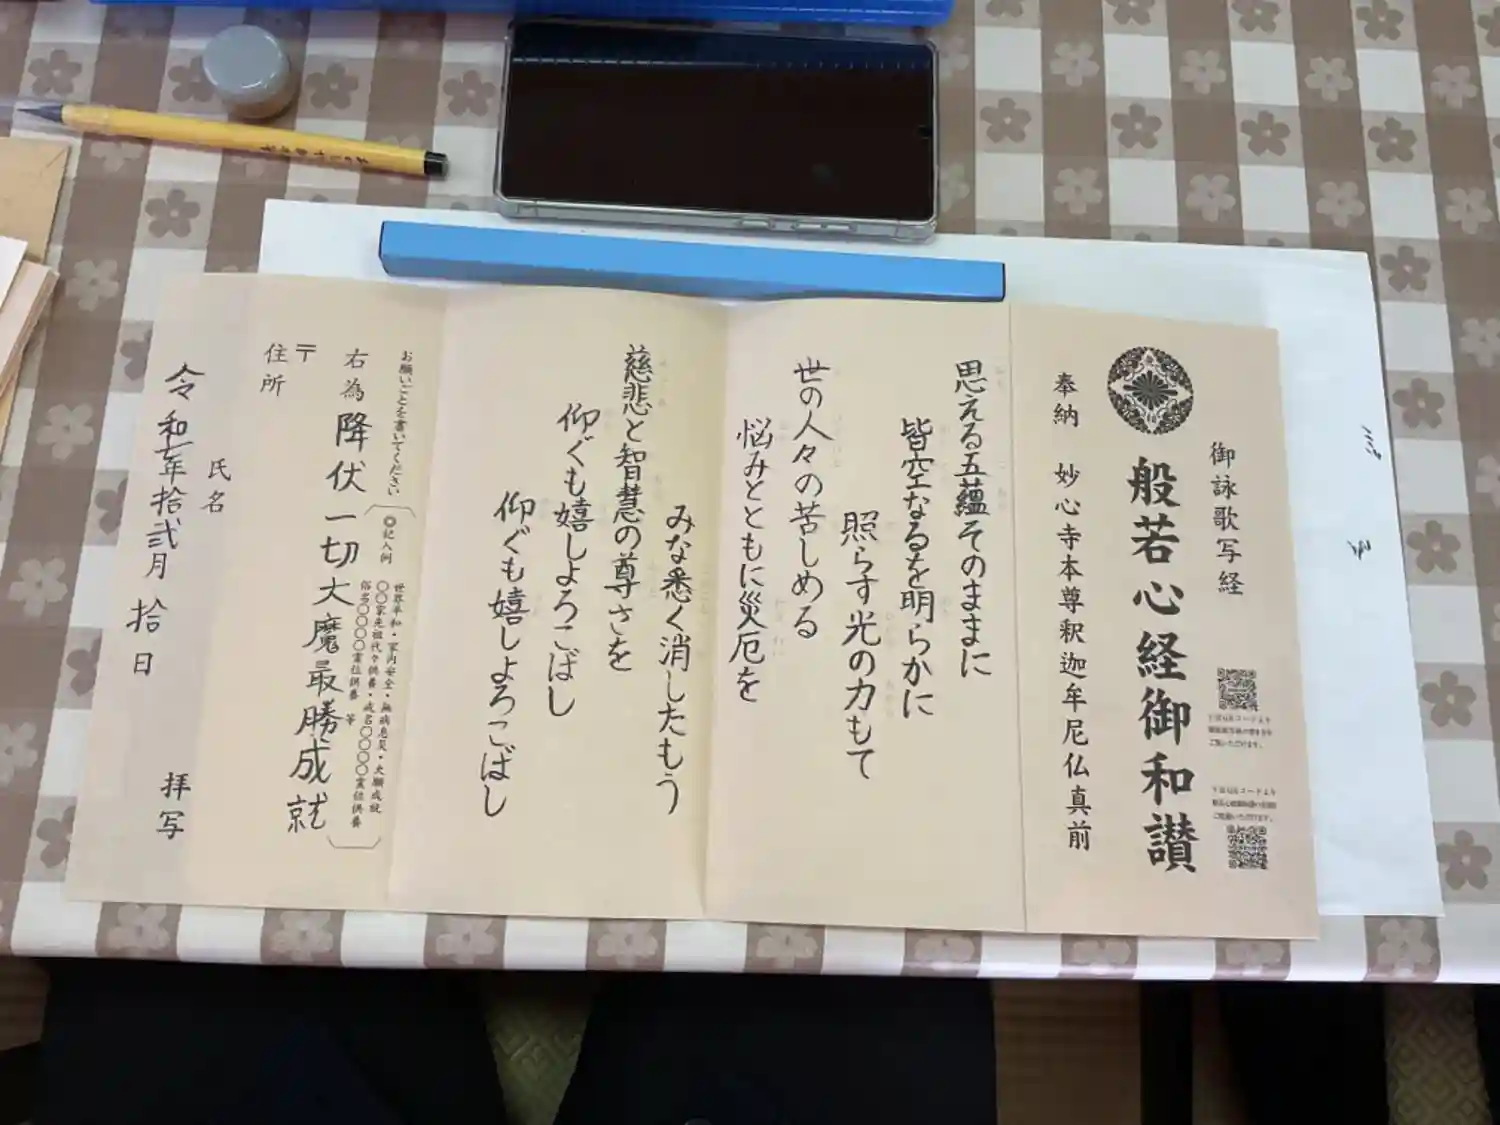 御詠歌写経
般若心経御和讃
奉納　妙心寺本尊釈迦牟尼仏真前
思える五蘊そのままに
皆空なるを明らかに
照らす光の力もて
世の人々の苦しめる
悩みとともに災厄を
みな悉く消したもう
慈悲と智慧の尊さを
仰ぐも嬉しよろこばし
仰ぐも嬉しよろこばし
お願いごとを書いてください
◎記入例
世界平和・家内安全・無病息災・大願成就
〇〇家先祖代々供養・戒名〇〇〇〇霊位供養
俗名〇〇〇〇霊位供養　等
右為　降伏一切大魔最勝成就
〒
住所
氏名
令和七年拾弐月拾日　拝写